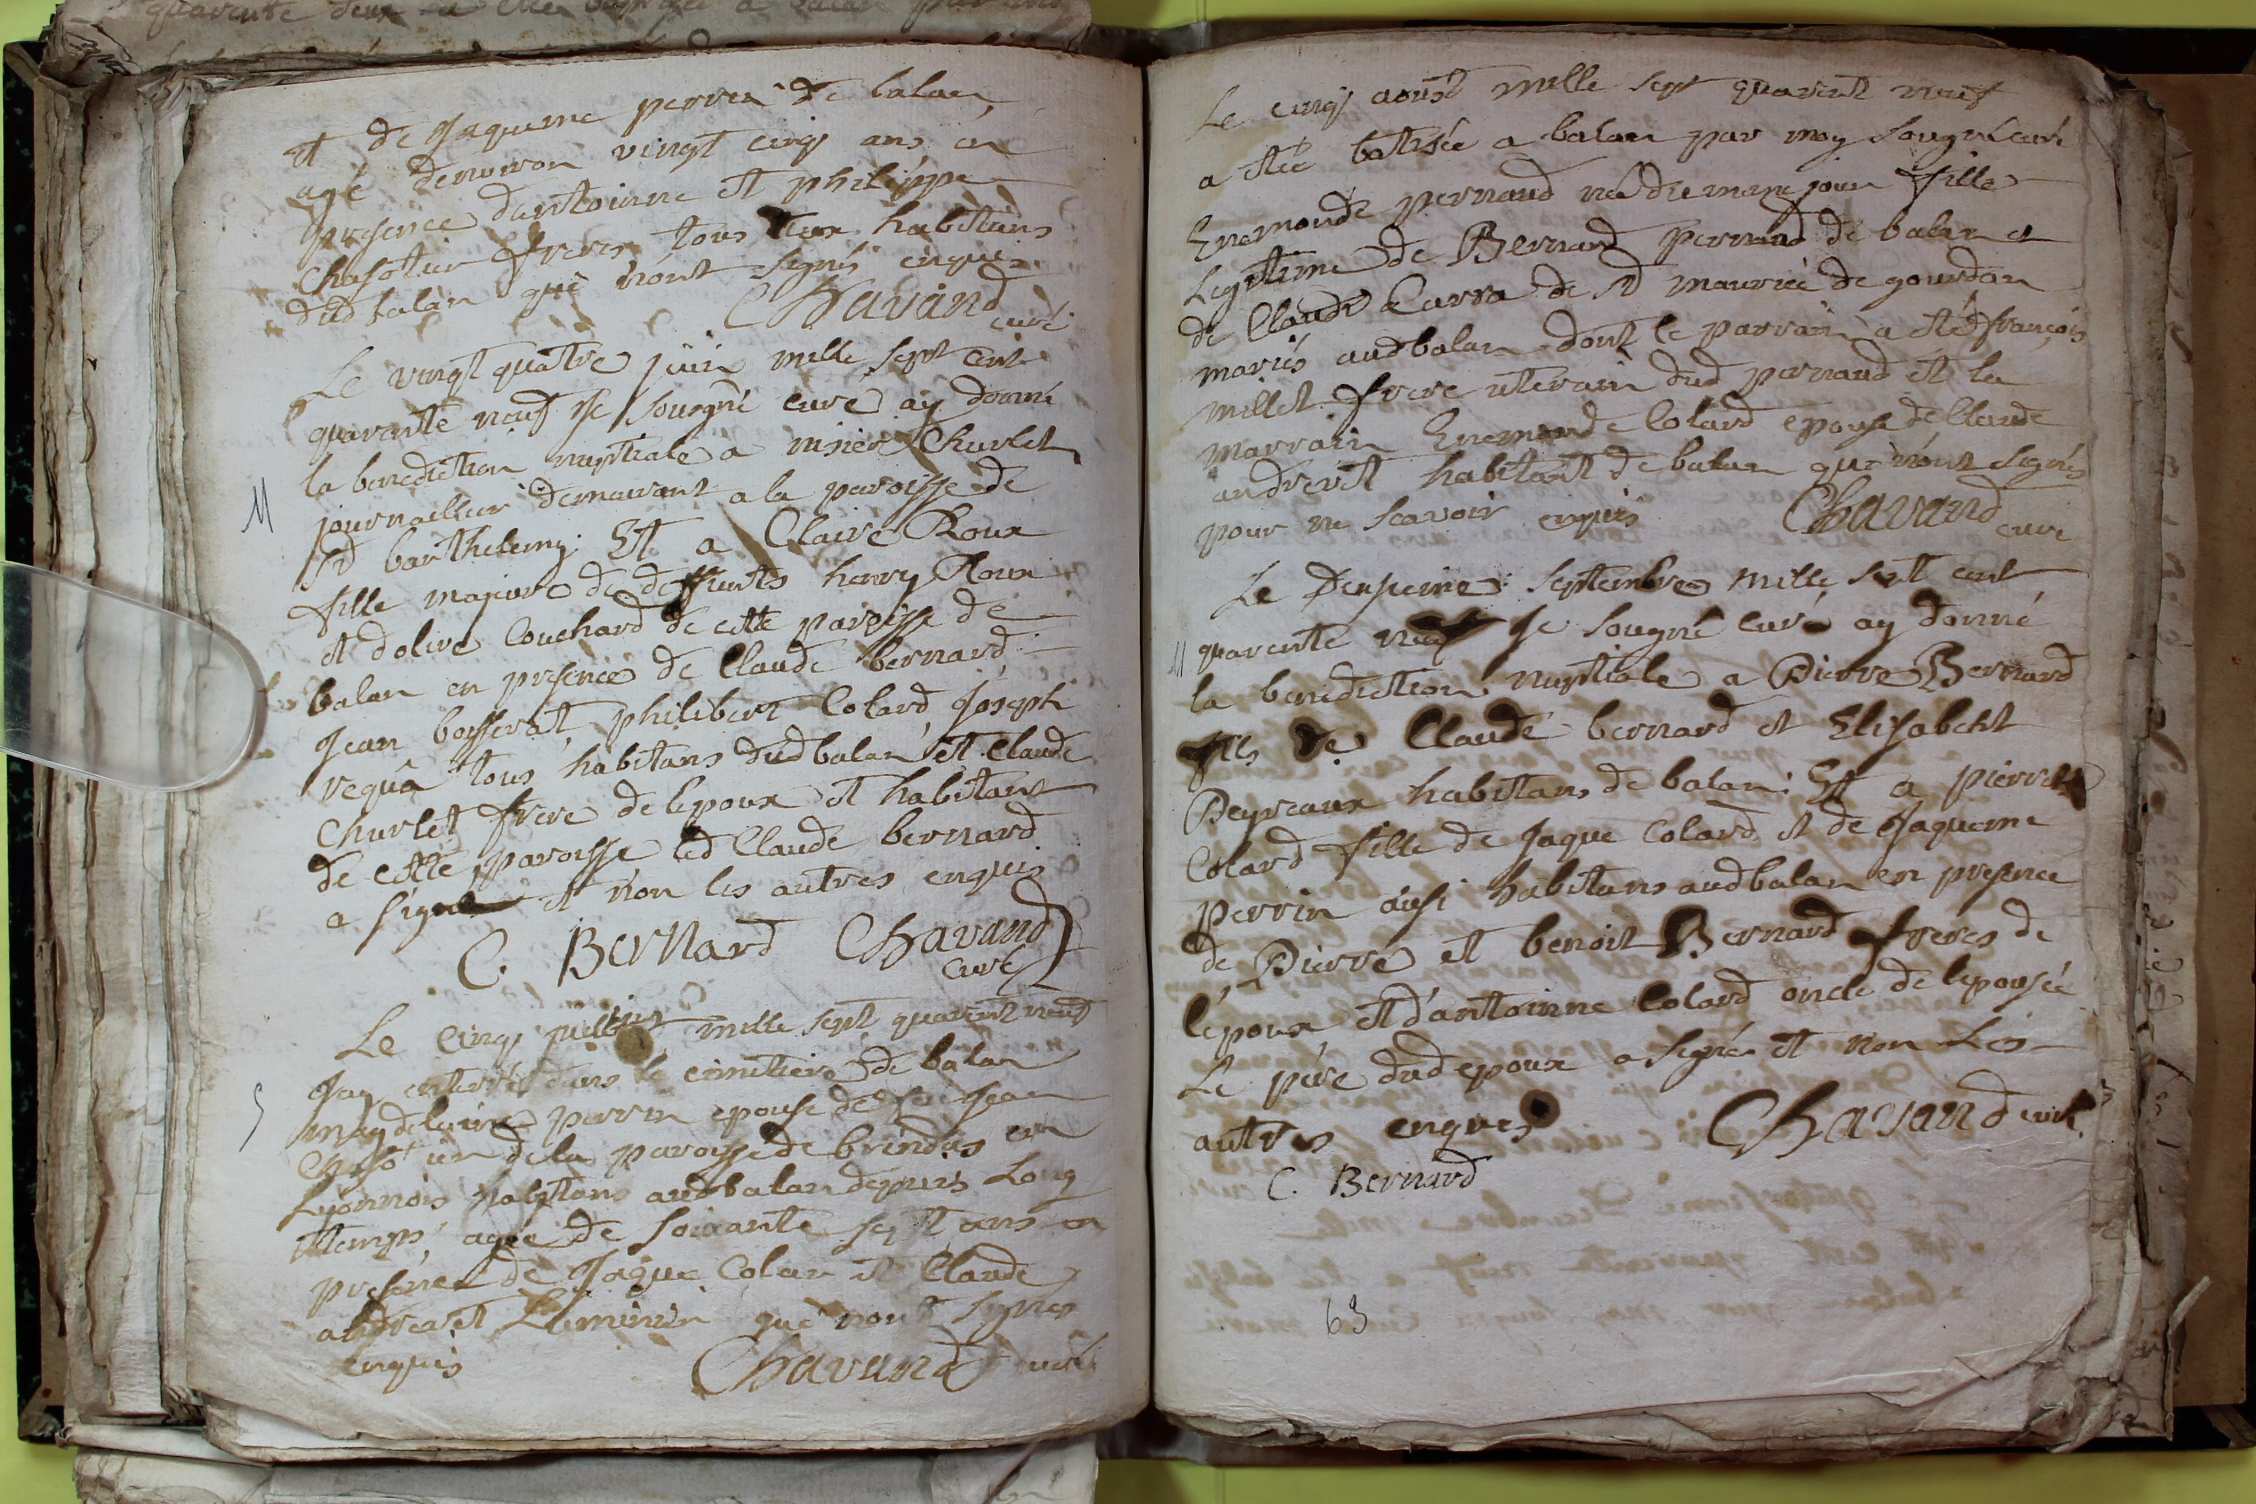 et de Jaqueme perrin de balan
agé denviron vingt cinq ans en
presence dantoinne et philippe
Chasotier freres tous deux habitans
dud balan qui n'ont signés enquis
Chavand
curé
Le vingt quatre juin mille sept cent
quarante neuf Je sousgné curé ay donné
la benediction nuptiale a nisier Churlet
journallier demeurant a la paroisse de
M
st barthelemy. Et a Claire Roux
fille majeure de deffunts henry Roux
et dolive Couchard de cette paroisse de
balan en presence de Claude bernard
Jean bosserat philibert Colard Joseph
requa tous habitans dud balan et Claude
Churlet frere de lepoux et habitant
de cette paroisse led Claude bernard
a signé et non les autres enquis
C. Bernard Chavand
curé
Le cinq juillet mille sept quarent neuf
Jay enterré dans le cimetiere de balan
S
magdelaine perrin epouse de feu Jean
Chasotier de la paroisse de brindas en
Lyonnois habitans aud balan depuis Long
temps, agée de soixante sept ans en
presence de Jaque Colar et Claude
andrevet qui n'ont signés
enquis Chavand curé
Le cinq aoust mille sept quarent neuf
a été batisée a balan par moy sougné curé
Enemonde pernaud née du meme jour fille
Legitime de Bernard pernaud de balan et
de Claude Carra de st maurice de gourdan
mariés aud balan dont le parrain a été françois
millet frere uterain dud pernaud et la
marrain Enemonde Colard epouse de Claude
andrevet habitant de balan qui n'ont signés
pour ne scavoir enquis Chavand
curé
Le septembre mille sept cent
M quarente neuf Je sougné curé ay donné
la benediction nuptiale a Pierre Bernard
fils de Claude bernard et Elisabeht
Peyreaux habitans de balan. Et a pierrette
Colard fille de Jaque Colard et de Jaqueme
perrin ausi habitans aud balan en presence
de Pierre et benoit Bernard freres de
l'epoux et d'antoinne Colard oncle de lepousée
Le pere dud epoux a signé et non Les
autres enquis Chavand curé
C. Bernard
63